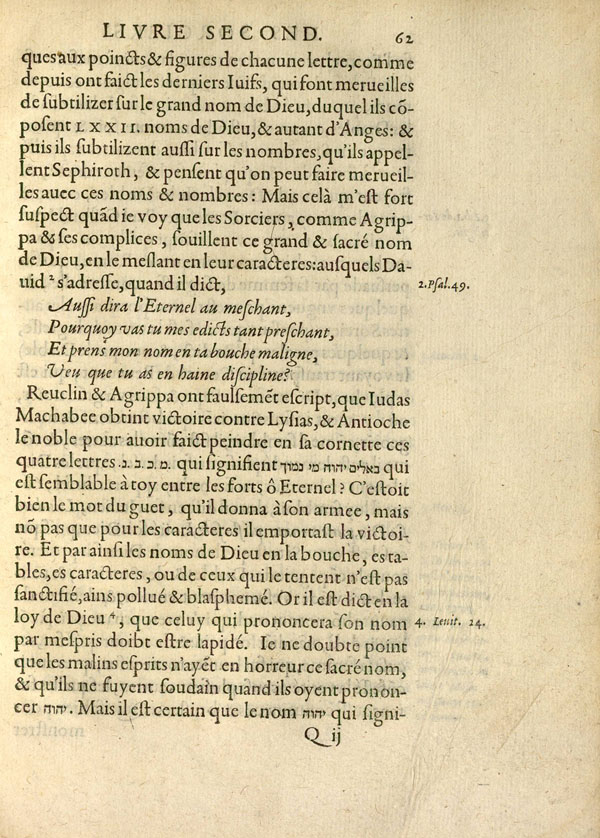 LIVRE SECOND. 62
ques aux poincts & figures de chacune lettre, comme
depuis ont faict les derniers Iuifs, qui font merueilles
de ſubtilizer ſur le grand nom de Dieu, duquel ils cõ-
poſent LXXII. noms de Dieu, & autant d'Anges: &
puis ils ſubtilizent auſſi ſur les nombres, qu'ils appel-
lent Sephiroth, & penſent qu'on peut faire merueil-
les auec ces noms & nombres: Mais celà m'eſt fort
ſuſpect quãd ie voy que les Sorciers, comme Agrip-
pa & ſes complices, ſouillent ce grand & ſacré nom
de Dieu, en le meſlant en leur caracteres: auſquels Da-
uid ² s'adreſſe, quand il dict, 2. Pſal. 49.
Auſſi dira l'Eternel au meſchant,
Pourquoy vas tu mes edicts tant preſchant,
Et prens mon nom en ta bouche maligne,
Veu que tu as en haine diſcipline?
Reuclin & Agrippa ont faulſemẽt eſcript, que Iudas
Machabee obtint victoire contre Lyſias, & Antioche
le noble pour auoir faict peindre en ſa cornette ces
quatre lettres .מ.כ.ב.נ qui ſignifient באלים יהוה מי כמוך qui
eſt ſemblable à toy entre les forts ô Eternel? C'eſtoit
bien le mot du guet, qu'il donna à ſon armee, mais
nõ pas que pour les caracteres il emportaſt la victoi-
re. Et par ainſi les noms de Dieu en la bouche, es ta-
bles, es caracteres, ou de ceux qui le tentent n'eſt pas
ſanctifié, ains pollué & blaſphemé. Or il eſt dict en la
loy de Dieu ⁴, que celuy qui prononcera ſon nom 4. Leuit. 24.
par meſpris doibt eſtre lapidé. Ie ne doubte point
que les malins eſprits n'ayẽt en horreur ce ſacré nom,
& qu'ils ne fuyent ſoudain quand ils oyent pronon-
cer יהוה. Mais il eſt certain que le nom יהוה qui ſigni-
Q ij